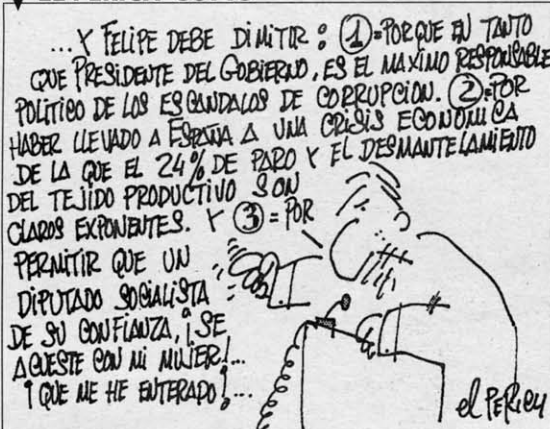 ...Y FELIPE DEBE DIMITIR: ①=PORQUE EN TANTO
QUE PRESIDENTE DEL GOBIERNO, ES EL MAXIMO RESPONSABLE
POLITICO DE LOS ESCANDALOS DE CORRUPCION. ②=POR
HABER LLEVADO A ESPAÑA A UNA CRISIS ECONOMICA
DE LA QUE EL 24% DE PARO Y EL DESMANTELAMIENTO
DEL TEJIDO PRODUCTIVO SON
CLAROS EXPONENTES. Y ③=POR
PERMITIR QUE UN
DIPUTADO SOCIALISTA
DE SU CONFIANZA, ¡SE
ACUESTE CON MI MUJER!...
¡QUE ME HE ENTERADO!...
el PERICH